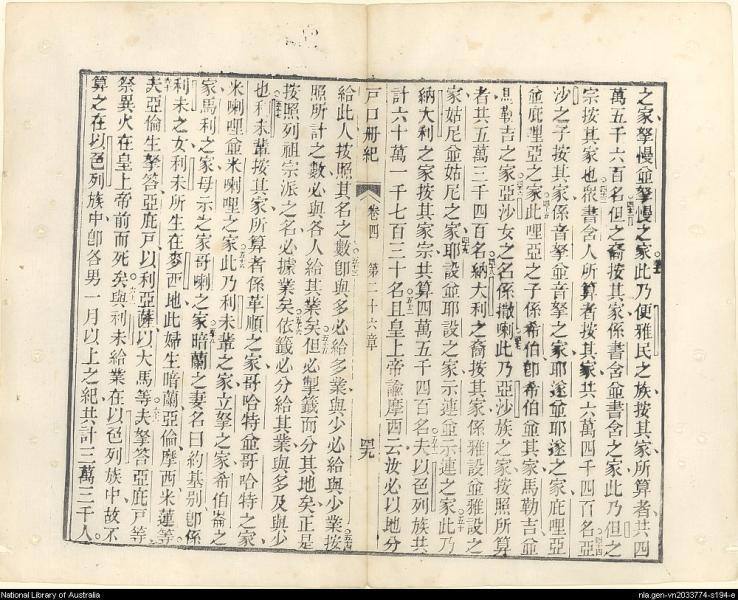 之家拏慢並拏慢之家此乃便雅民之族按其家所算者共四
萬五千六百名但之裔按其家係書含並書含之家此乃但之
宗按其家也衆書含人所算者按其家共六萬四千四百名亞
沙之子按其家係音拏並音拏之家耶遂並耶遂之家庇哩亞
並庇哩亞之家此哩亞之子係希伯卽希伯並其家馬勒吉並
馬勒吉之家亞沙女之名係撒喇此乃亞沙族之家按照所算
者共五萬三千四百名納大利之裔按其家係雅設並雅設之
家姑尼並姑尼之家耶設並耶設之家示連並示連之家此乃
納大利之家按其家宗共算四萬五千四百名夫以色列族共
計六十萬一千七百三十名且皇上帝諭摩西云汝必以地分
戶口册紀 卷四 第二十六章
給此人按照其名之數卽與多必給多業與少必給與少業按
照所計之數必與各人給其業矣但必掣籤而分其地矣正是
按照列祖宗派之名必據業矣依籤必分給其業與多及與少
也利未輩按其家所算者係革順之家哥哈特並哥哈特之家
米喇哩並米喇哩之家此乃利未輩之家立拏之家希伯崙之
家馬利之家母示之家哥喇之家暗蘭之妻名曰約基別卽係
利未之女利未所生在麥西地此婦生暗蘭亞倫摩西米蓮等
夫亞倫生拏答亞庇戶以利亞薩以大馬等夫拏答亞庇戶等
祭異火在皇上帝前而死矣與利未給業在以色列族中故不
算之在以色列族中卽各男一月以上之紀共計三萬三千人
National Library of Australia
nla.gen-vn2033774-s194-e